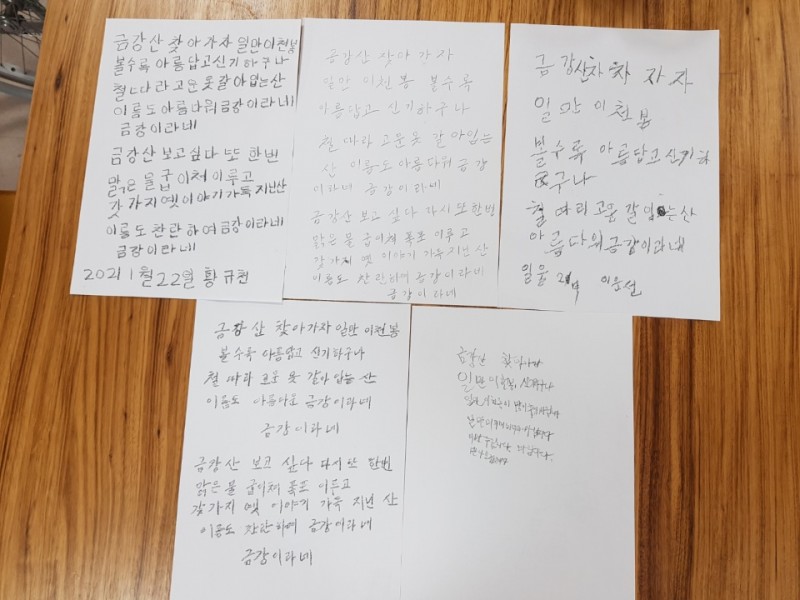 금강산 찾아가자 일만이천봉
볼수록 아름답고신기하구나
철따라 고운옷갈아입는산
이름도아름다워금강이라네
금강이라네
금강산보고싶다 또 한번
맑은 물굽이쳐 이루고
갖가지옛이야기가득지닌산
이름도찬란하여금강이라네
금강이라네
2021 1월22일 황규천
금강산 찾아 간자
일만 이천봉 볼수록
아름답고 신기하구나
철따라 고운옷 갈아입는
산 이름도아름다워 금강
이라네 금강이라네
금강산 보고 싶다 다시 또한번
맑은물 굽이쳐 폭포 이루고
갖가지 옛 이야기 가득지닌 산
이름도 찬란하여 금강이라네
금강이라네
금강산차차자자
일만이천봉
볼수록 아름답고신기하
구나
철따리고운갈입는산
아름다워금강이라네
일월 이음선
금강산 찾아가자 일만 이천봉
볼수록 아름답고 신기하구나
철 따라 고운 옷 갈아입는 산
이름도 아름아운 금강이라네
금강이라네
금강산 보고 싶다 다시또 한번
맑은 물 굽이쳐 폭포 이루고
갖가지 옛 이야기 가득 지닌 산
이름도 찬란하여 금강이라네
금강이라네
금강산
일만이천봉